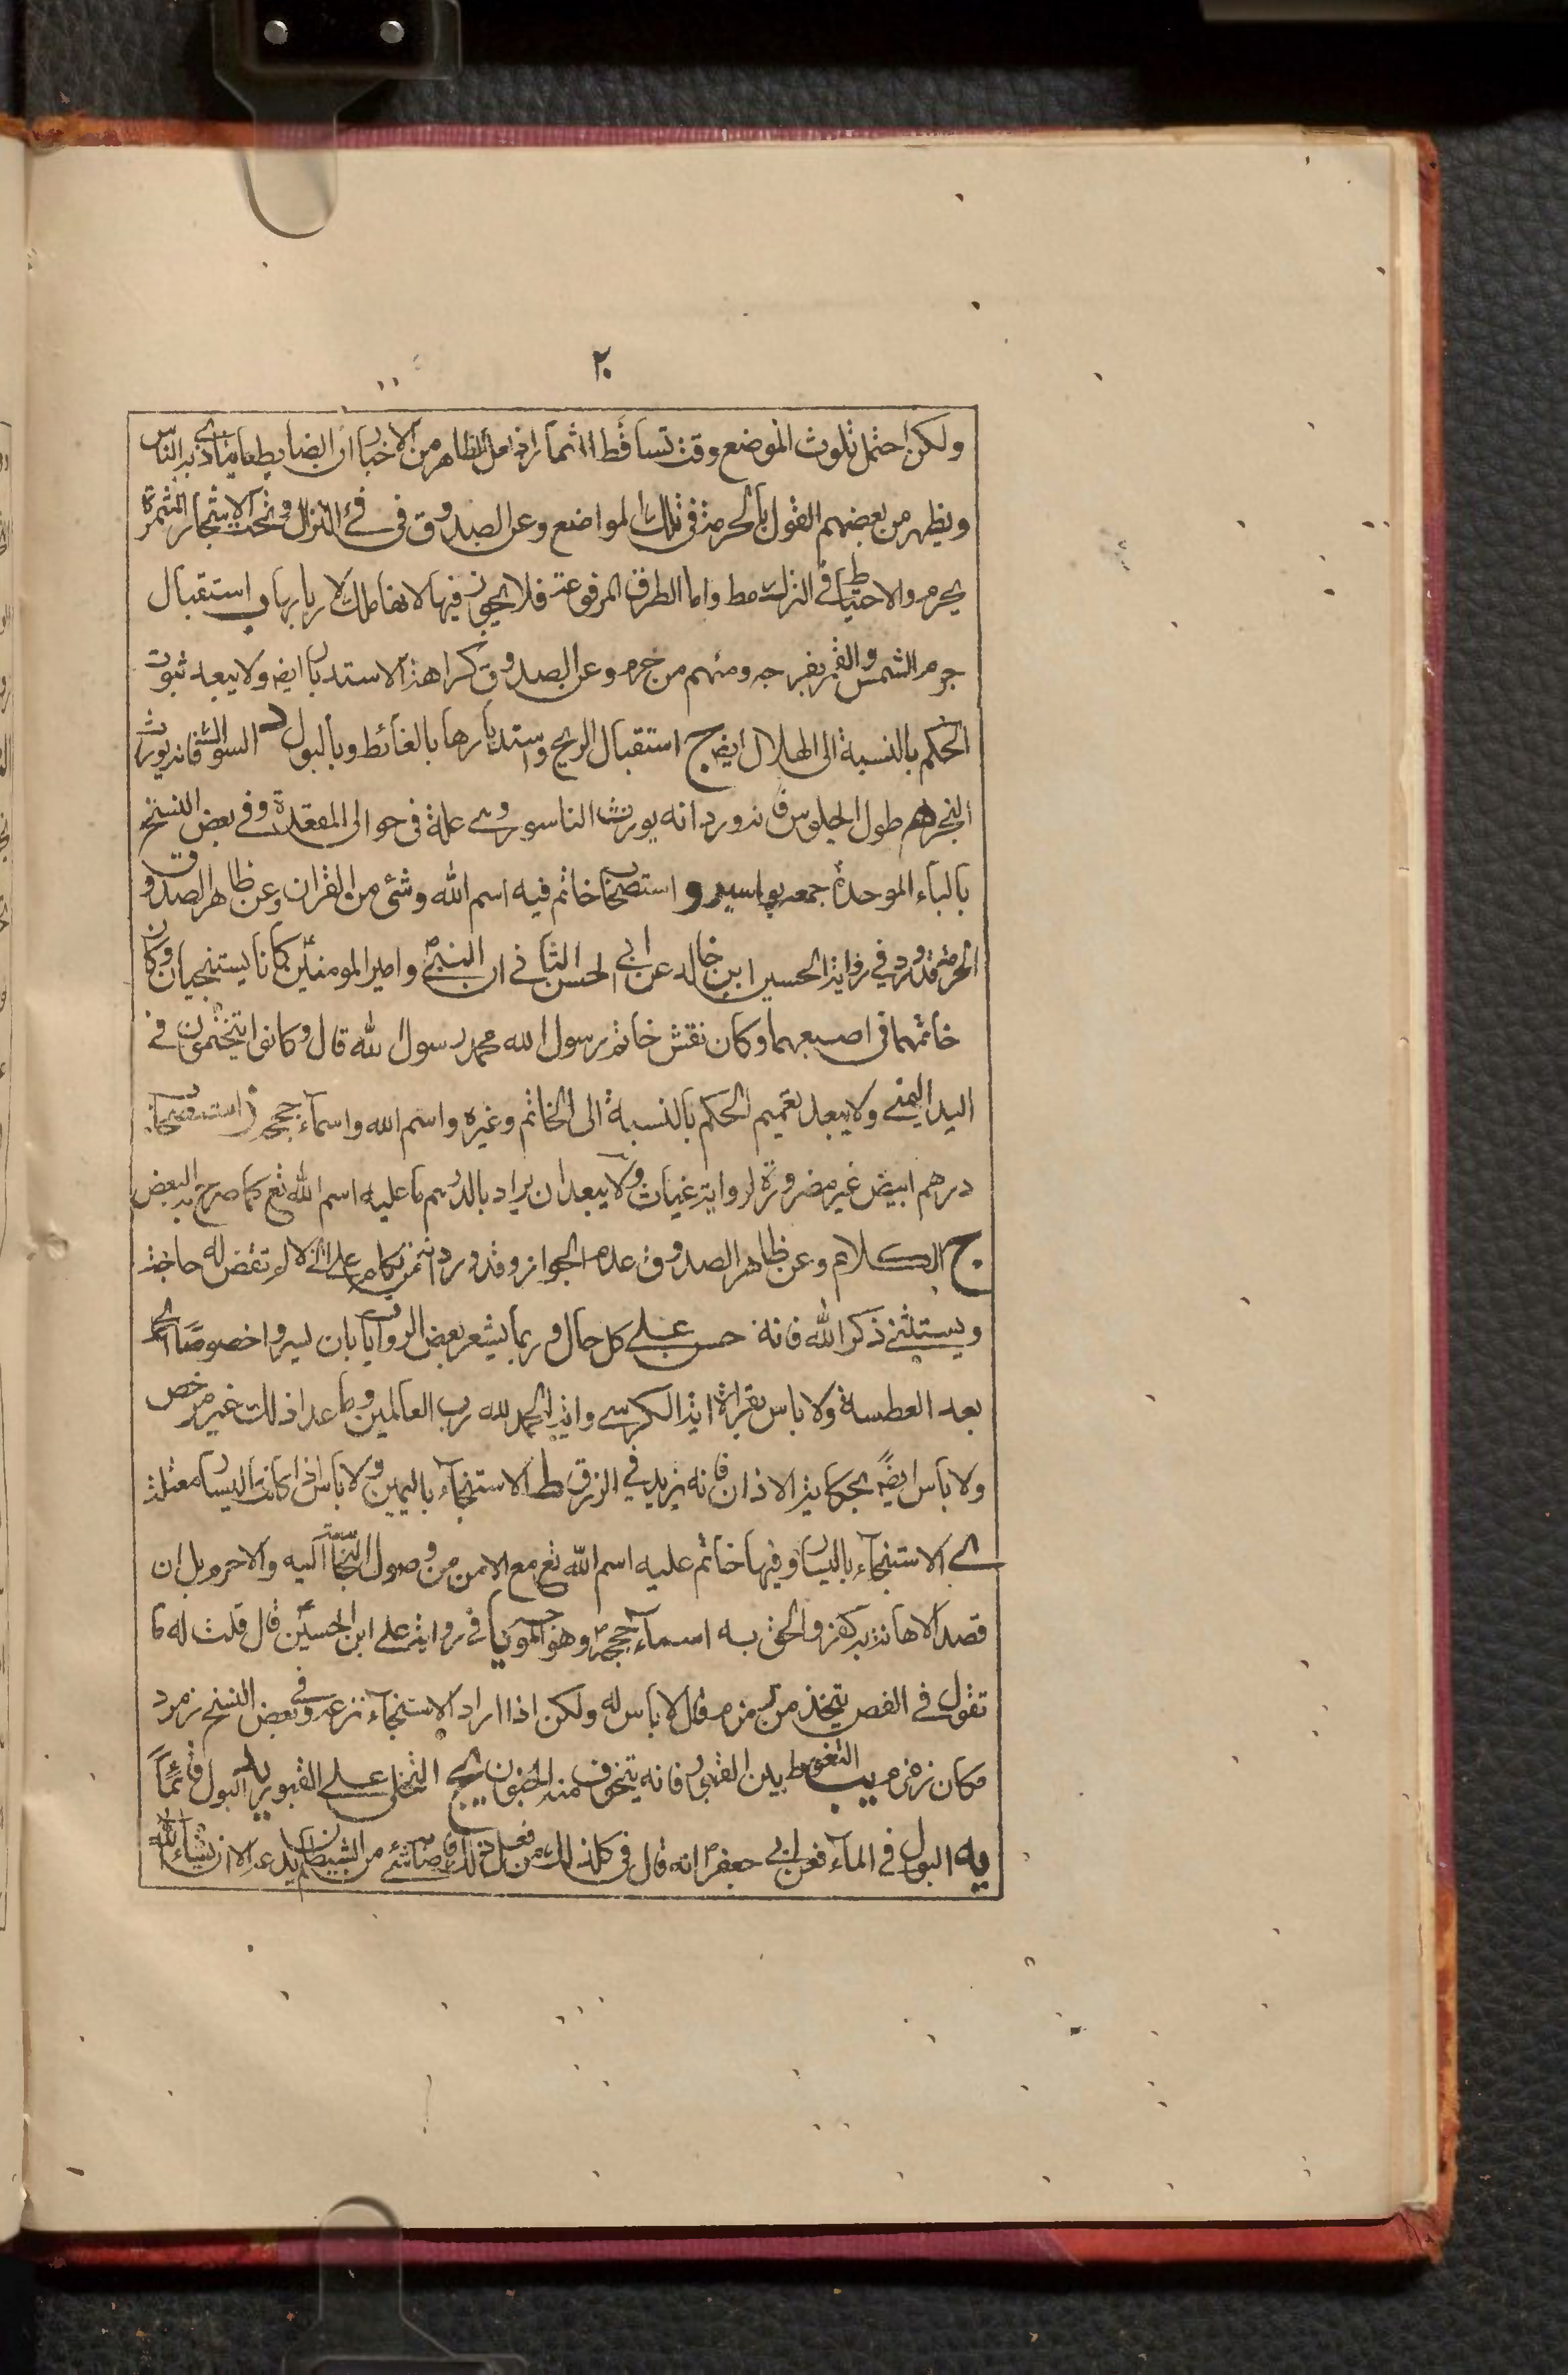 ٢٠
ولكن احتمل تلوث الموضع وقت تساقط الثمار اذ الظاهر من الاخبار ان الضابط ما يتاذى به الناس
ويظهر من بعضهم القول بالحرمة فى تلك المواضع وعن الصدوق فى فئ النزال وتحت الاشجار المثمرة
يحرم والاحتياط فى الترك مط واما الطرق المرفوعة فلا يجوز فيها لانها ملك لاربابها ب استقبال
جرم الشمس والقمر بفرجه ومنهم من حرم وعن الصدوق كراهة الاستدبار ايض ولا يبعد ثبوت
الحكم بالنسبة الى الهلال ايض ج استقبال الريح واستدبارها بالغائط وبالبول د السواك فانه يورث
البخر ه طول الجلوس فانه ورد انه يورث الناسور وهى علة فى حوالى المقعدة وفى بعض النسخ
بالباء الموحدة جمعه بواسير و استصحاب خاتم فيه اسم الله وشئ من القران وعن ظاهر الصدوق
الحرمة وقد ورد في رواية الحسين ابن خالد عن ابى الحسن الثانى ان النبيؐ وامير المومنينؑ كانا يستنجيان وكان
خاتمهما فى اصبعهما وكان نقش خاتم رسول الله محمد رسول الله قال وكانوا يتختمون فى
اليد اليمنى ولا يبعد تعميم الحكم بالنسبة الى الخاتم وغيره واسم الله واسمآء حججه ز استصحاب
درهم ابيض غير مصرورة لرواية غياث ولا يبعد ان يراد بالدرهم ما عليه اسم الله تع كما صرح به البعض
ح الكلام وعن ظاهر الصدوق عدم الجواز وقد ورد ان من تكلم على الخلا لم تقض له حاجة
ويستثنى ذكر الله فانه حسن على كل حال وربما يشعر بعض الروايات بان يسر واخصوصا الحمد
بعد العطسة ولا باس بقرائة اية الكرسى واية الحمد لله رب العالمين وما عدا ذلك غير مرخص
ولا باس ايضً بحكاية الاذان فانه يزيد في الرزق ط الاستنجآء باليمين ولا باس اذا كانت اليسار معتلة
ى الاستنجآء باليسار وفيها خاتم عليه اسم الله تع مع الامن من وصول النجاسة اليه والا حرم بل ان
قصد الاهانة به كفر والحق به اسمآء حججه وهو فى رواية على ابن الحسينؑ قال قلت له ما
تقول فى الفص يتخذ من زمزم قال لا باس له ولكن اذا اراد الاستنجآء نزعه وفى بعض النسخ زمرد
مكان زمزم يب التغوط بين القبور فانه يتخوف منه الجنون يج التخلى على القبور يد البول قائماً
يه البول فى المآء فعن ابى جعفرؑ انه قال فى كل ذلك من فعل ذلك فاصابه شئ من الشيطان لم يدعه الا ان يشآء الله